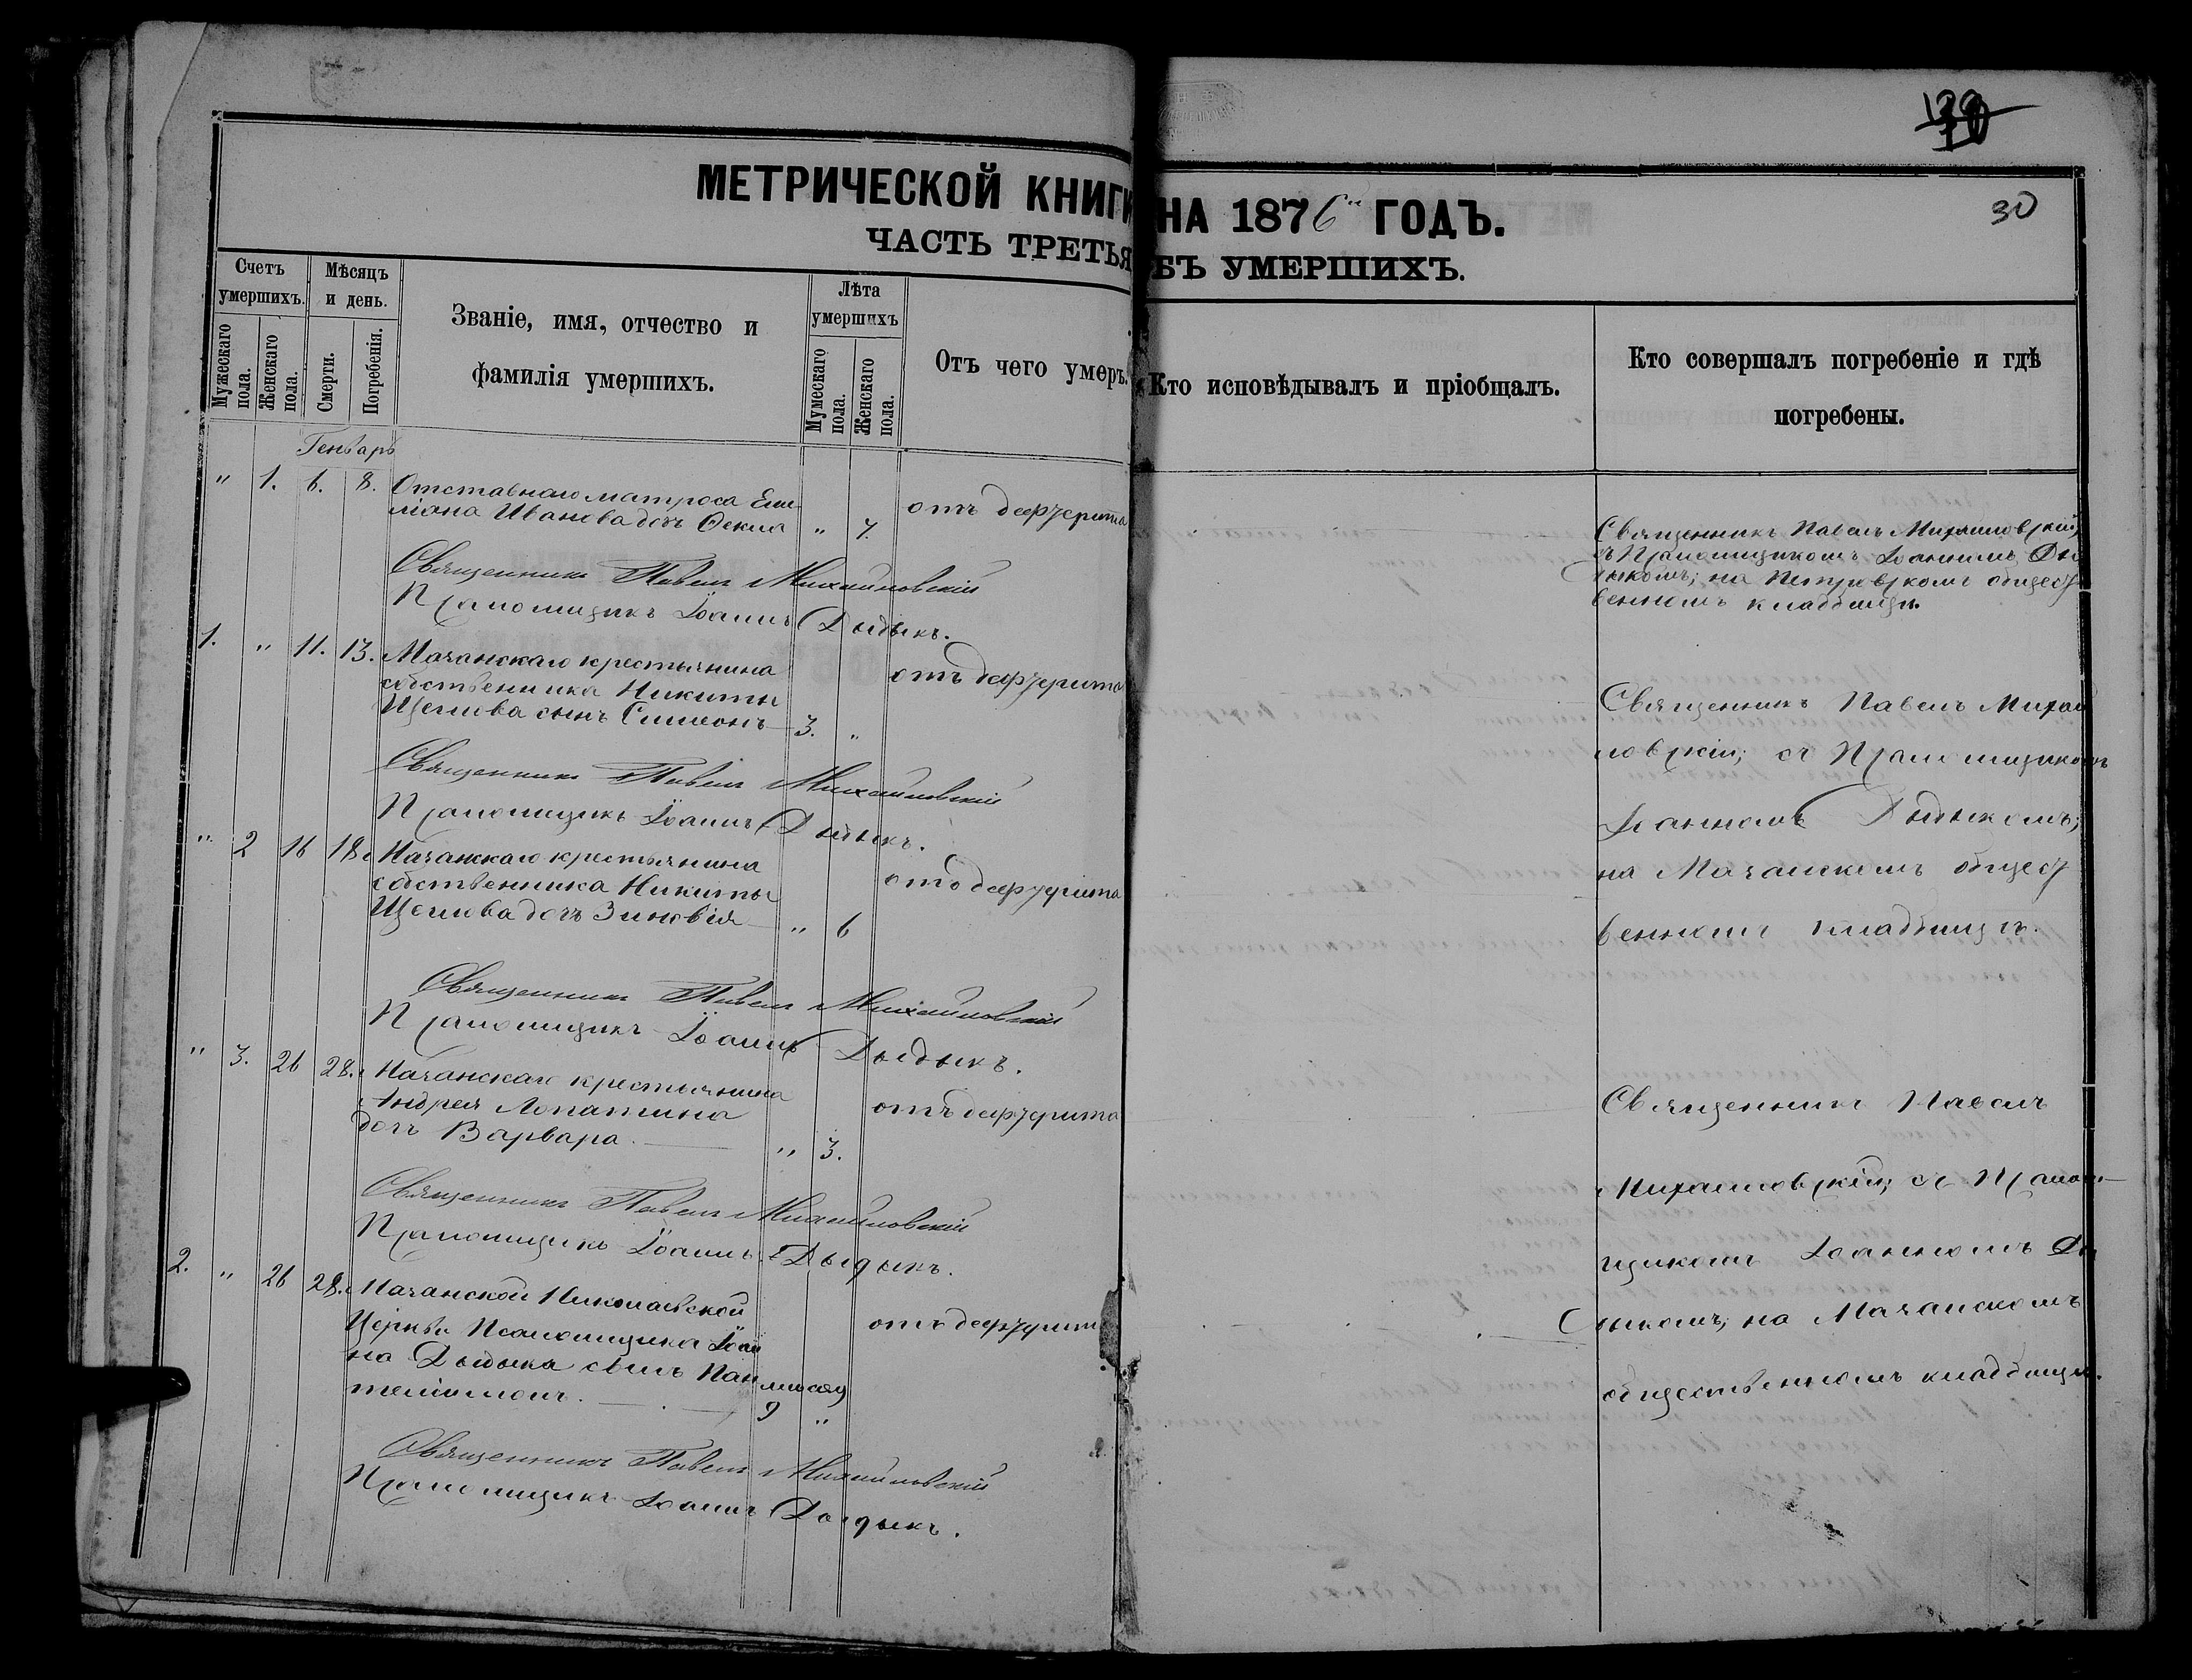 30
МЕТРИЧЕСКОЙ КНИГИ НА 1876й ГОДЪ.
ЧАСТЬ ТРЕТЬЯ БЪ УМЕРШИХЪ.
Счетъ умершихъ.
Мужескаго пола.
Женскаго пола.
Мѣсяцъ и день.
Смерти.
Погребенія.
Званіе, имя, отчество и
фамилія умершихъ.
Лѣта умершихъ
Мужескаго пола.
Женскаго пола.
Отъ чего умеръ.
Кто исповѣдывалъ и пріобщалъ.
Кто совершалъ погребеніе и гдѣ
погребены.
Генварь
" 1. 6. 8. Отставнаго матроса Еми
ліана Иванова дочь Ѳекла " 7. отъ дифтерита
Священникъ Павелъ Михайловскій
съ Псаломщикомъ Іоанномъ Ды
дыкомъ; на Петровскомъ общест
венномъ кладбищѣ.
Священникъ Павелъ Михайловскій
Псаломщикъ Іоаннъ Дыдыкъ.
1. " 11. 13. Мачанскаго крестьянина
собственника Никиты
Щеглова сынъ Симеонъ 3. " отъ дифтерита
Священникъ Павелъ Михай
ловскій; съ Псаломщикомъ
Іоанномъ Дыдыкомъ;
на Мачанскомъ общест
венномъ кладбищѣ.
Священникъ Павелъ Михайловскій
Псаломщикъ Іоаннъ Дыдыкъ.
" 2 16 18. Мачанскаго крестьянина
собственника Никиты
Щеглова дочь Зиновія " 6 отъ дифтерита
Священникъ Павелъ Михайловскій
Псаломщикъ Іоаннъ Дыдыкъ.
" 3. 26 28. Мачанскаго крестьянина
Андрея Лопатина
дочь Варвара. " 3. отъ дифтерита
Священникъ Павелъ
Михайловскій; съ Псалом
щикомъ Іоанномъ Ды
дыкомъ; на Мачанскомъ
общественномъ кладбищѣ.
Священникъ Павелъ Михайловскій
Псаломщикъ Іоаннъ Дыдыкъ.
2. " 26 28. Мачанской Николаевской
Церкви Псаломщика Іоан
на Дыдыка сынъ Пан
телеимонъ. 9 " отъ дифтерит
Священникъ Павелъ Михайловскій
Псаломщикъ Іоаннъ Дыдыкъ.